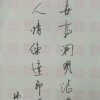 世事洞明皆
人情练达即